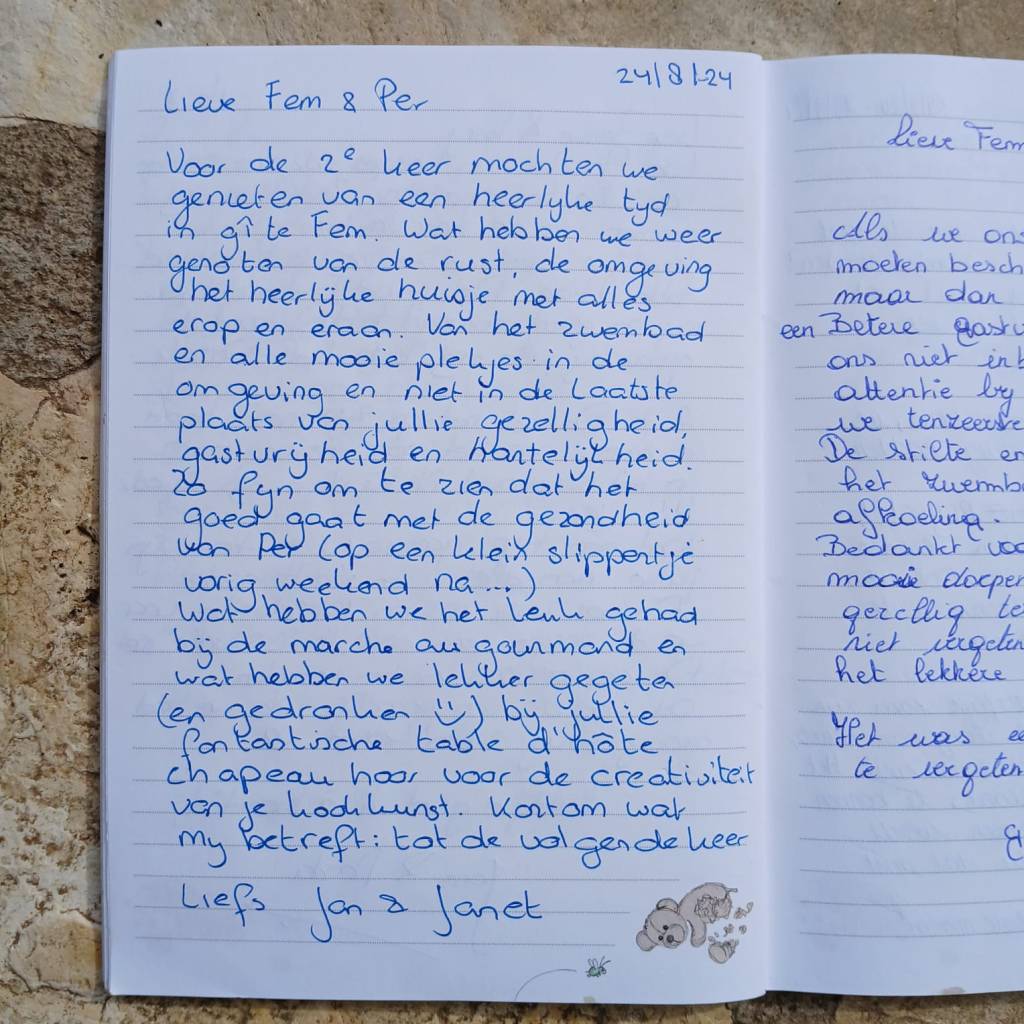 24/8/-24
Lieve Fem & Per
Voor de 2e keer mochten we
genieten van een heerlyke tyd
in gîte Fem. Wat hebben we weer
genoten van de rust, de omgeving
het heerlijke huisje met alles
erop en eraan. Van het zwembad
en alle mooie plekjes in de
omgeving en niet in de Laatste
plaats van jullie gezelligheid,
gastvrijheid en Hartelijkheid.
Zo fyn om te zien dat het
goed gaat met de gezondheid
van Per (op een klein slippertje
vorig weekend na...)
Wat hebben we het leuk gehad
bij de marche au gourmand en
wat hebben we lekker gegeten
(en gedronken ☺) bij jullie
fantastische table d'hôte
chapeau hoor voor de creativiteit
van je kookkunst. Kortom wat
my betreft: tot de volgende keer
Liefs Jan & Janet
Lieve Fem
Als we ons
moeten besch
maar dan
een Betere gastv
ons niet in
attentie by
we tenzeerste
De stilte en
het zwemb
afkoeling.
Bedankt voo
mooie dorpen
gezellig te
niet vergeten
het lekkere
Het was ee
te vergeten